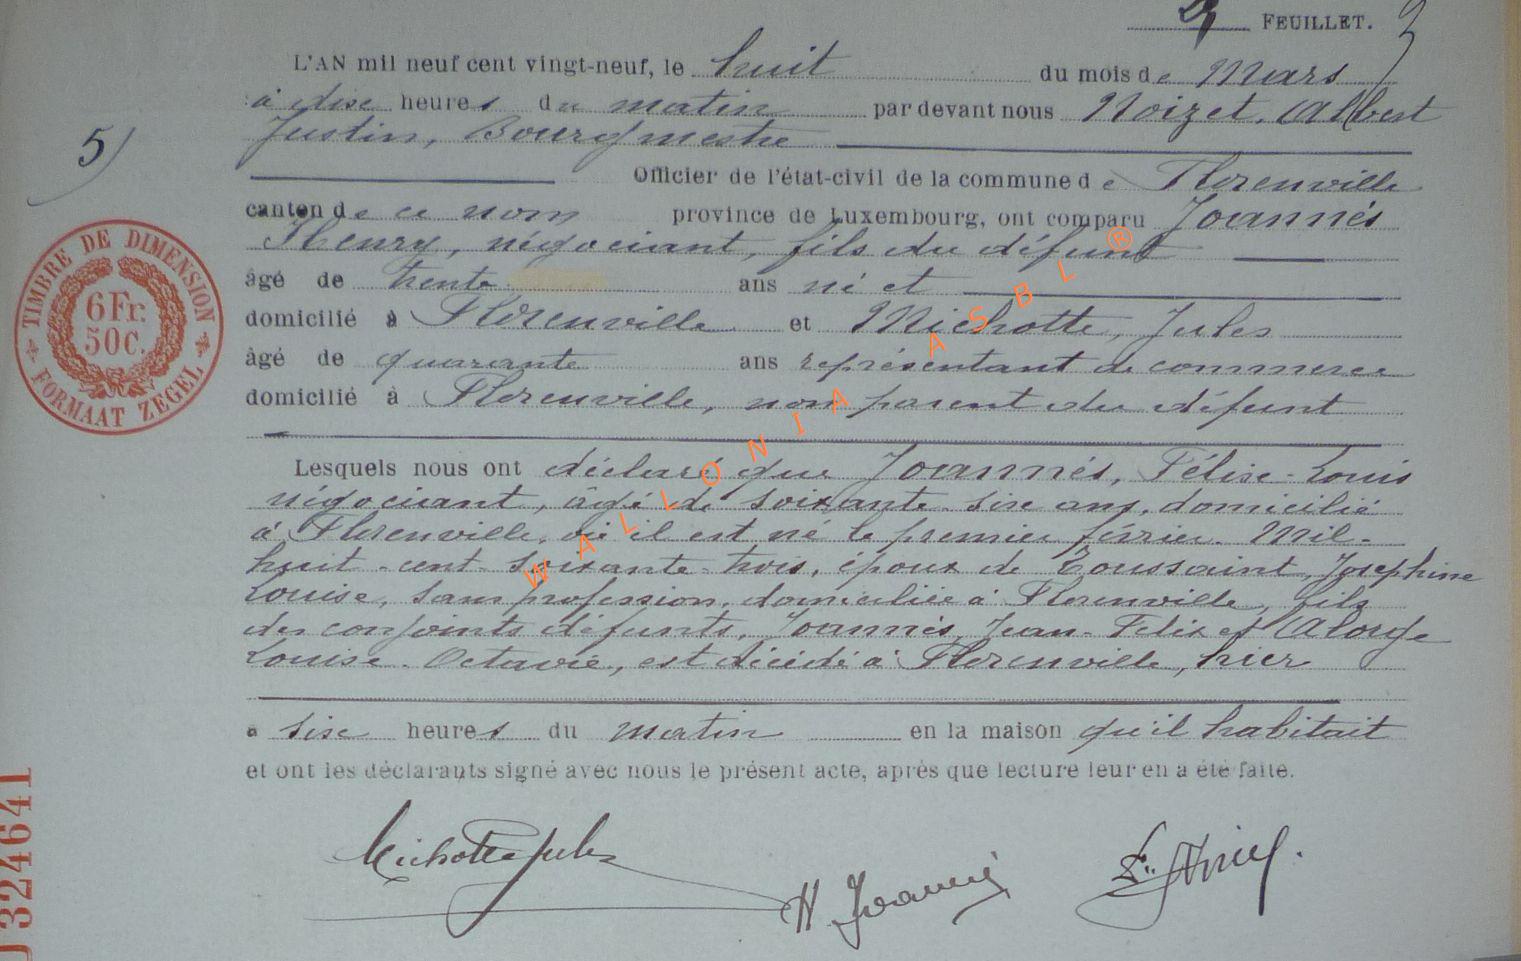 2 FEUILLET.
L'AN mil neuf cent vingt-neuf, le huit du mois de Mars
à dix heures du matin par devant nous Noizet, Albert
Justin, Bourgmestre
5)
Officier de l'état-civil de la commune de Florenville
canton de ce nom province de Luxembourg, ont comparu Joannès
Henry, négociant, fils du défunt
âgé de trente ans né et
domicilié à Florenville et Michotte, Jules
âgé de quarante ans représentant de commerce
domicilié à Florenville, non parent du défunt
Lesquels nous ont déclaré que Joannès, Félix-Louis
négociant, âgé de soixante-six ans, domicilié
à Florenville, où il est né le premier février Mil-
huit-cent-soixante-trois, époux de Toussaint, Josephine
Louise, sans profession, domiciliée à Florenville, fils
des conjoints défunts, Joannès, Jean-Felix et
Louise-Octavie, est décédé à Florenville, hier
à six heures du matin en la maison qu'il habitait
et ont les déclarants signé avec nous le présent acte, après que lecture leur en a été faite.
Michotte Jules
H. Joannès
TIMBRE DE DIMENSION
6 Fr.
50 C.
FORMAAT ZEGEL
324641
WALLONIA ASBL ®